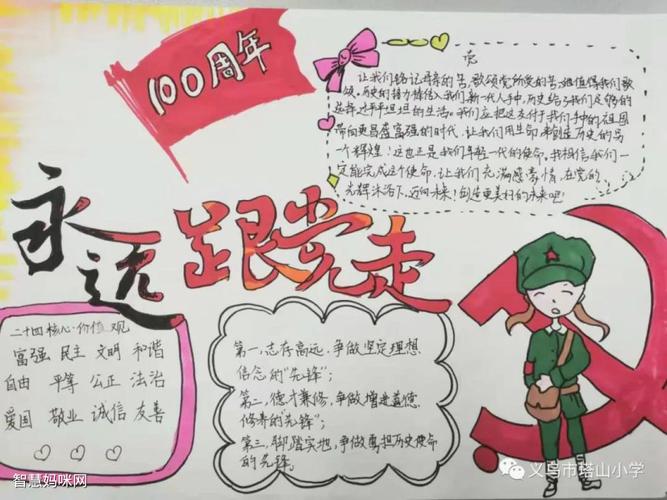 100周年
颂
让我们铭记前辈的苦,歌颂党所受的苦,
颂。历史的接力棒传入我们新一代人手中,历史给予我们足够的
选择过平平坦坦的生活。我们应把这交付于我们手中的祖国
带向更昌盛富强的时代,让我们用生命来创造历史的另
一个辉煌!这也正是我们年轻一代的使命。我相信我们一
定能完成这个使命,让我们充满感豪情,在党的
光辉沐浴下,迈向未来!创造更美好的未来吧!
永远跟党走
二十四核心·价值观
富强 民主 文明 和谐
自由 平等 公正 法治
爱国 敬业 诚信 友善
第一,志存高远,争做坚定理想
信念的“先锋”;
第二,德才兼修,争做增进道德
修养的“先锋”;
第三,脚踏实地,争做勇担历史使命
的先锋。
智慧妈咪网
义乌市塔山小学